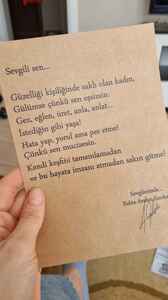 Sevgili sen,...
Güzelliği kişiliğinde saklı olan kadın,
Gülümse çünkü sen eşsizsin.
Gez, eğlen, üret, anla, anlat...
İstediğin gibi yaşa!
Hata yap, yorul ama pes etme!
Çünkü sen mucizesin.
Kendi keşfini tamamlamadan
ve bu hayata imzanı atmadan sakın gitme!
Sevgilerimle